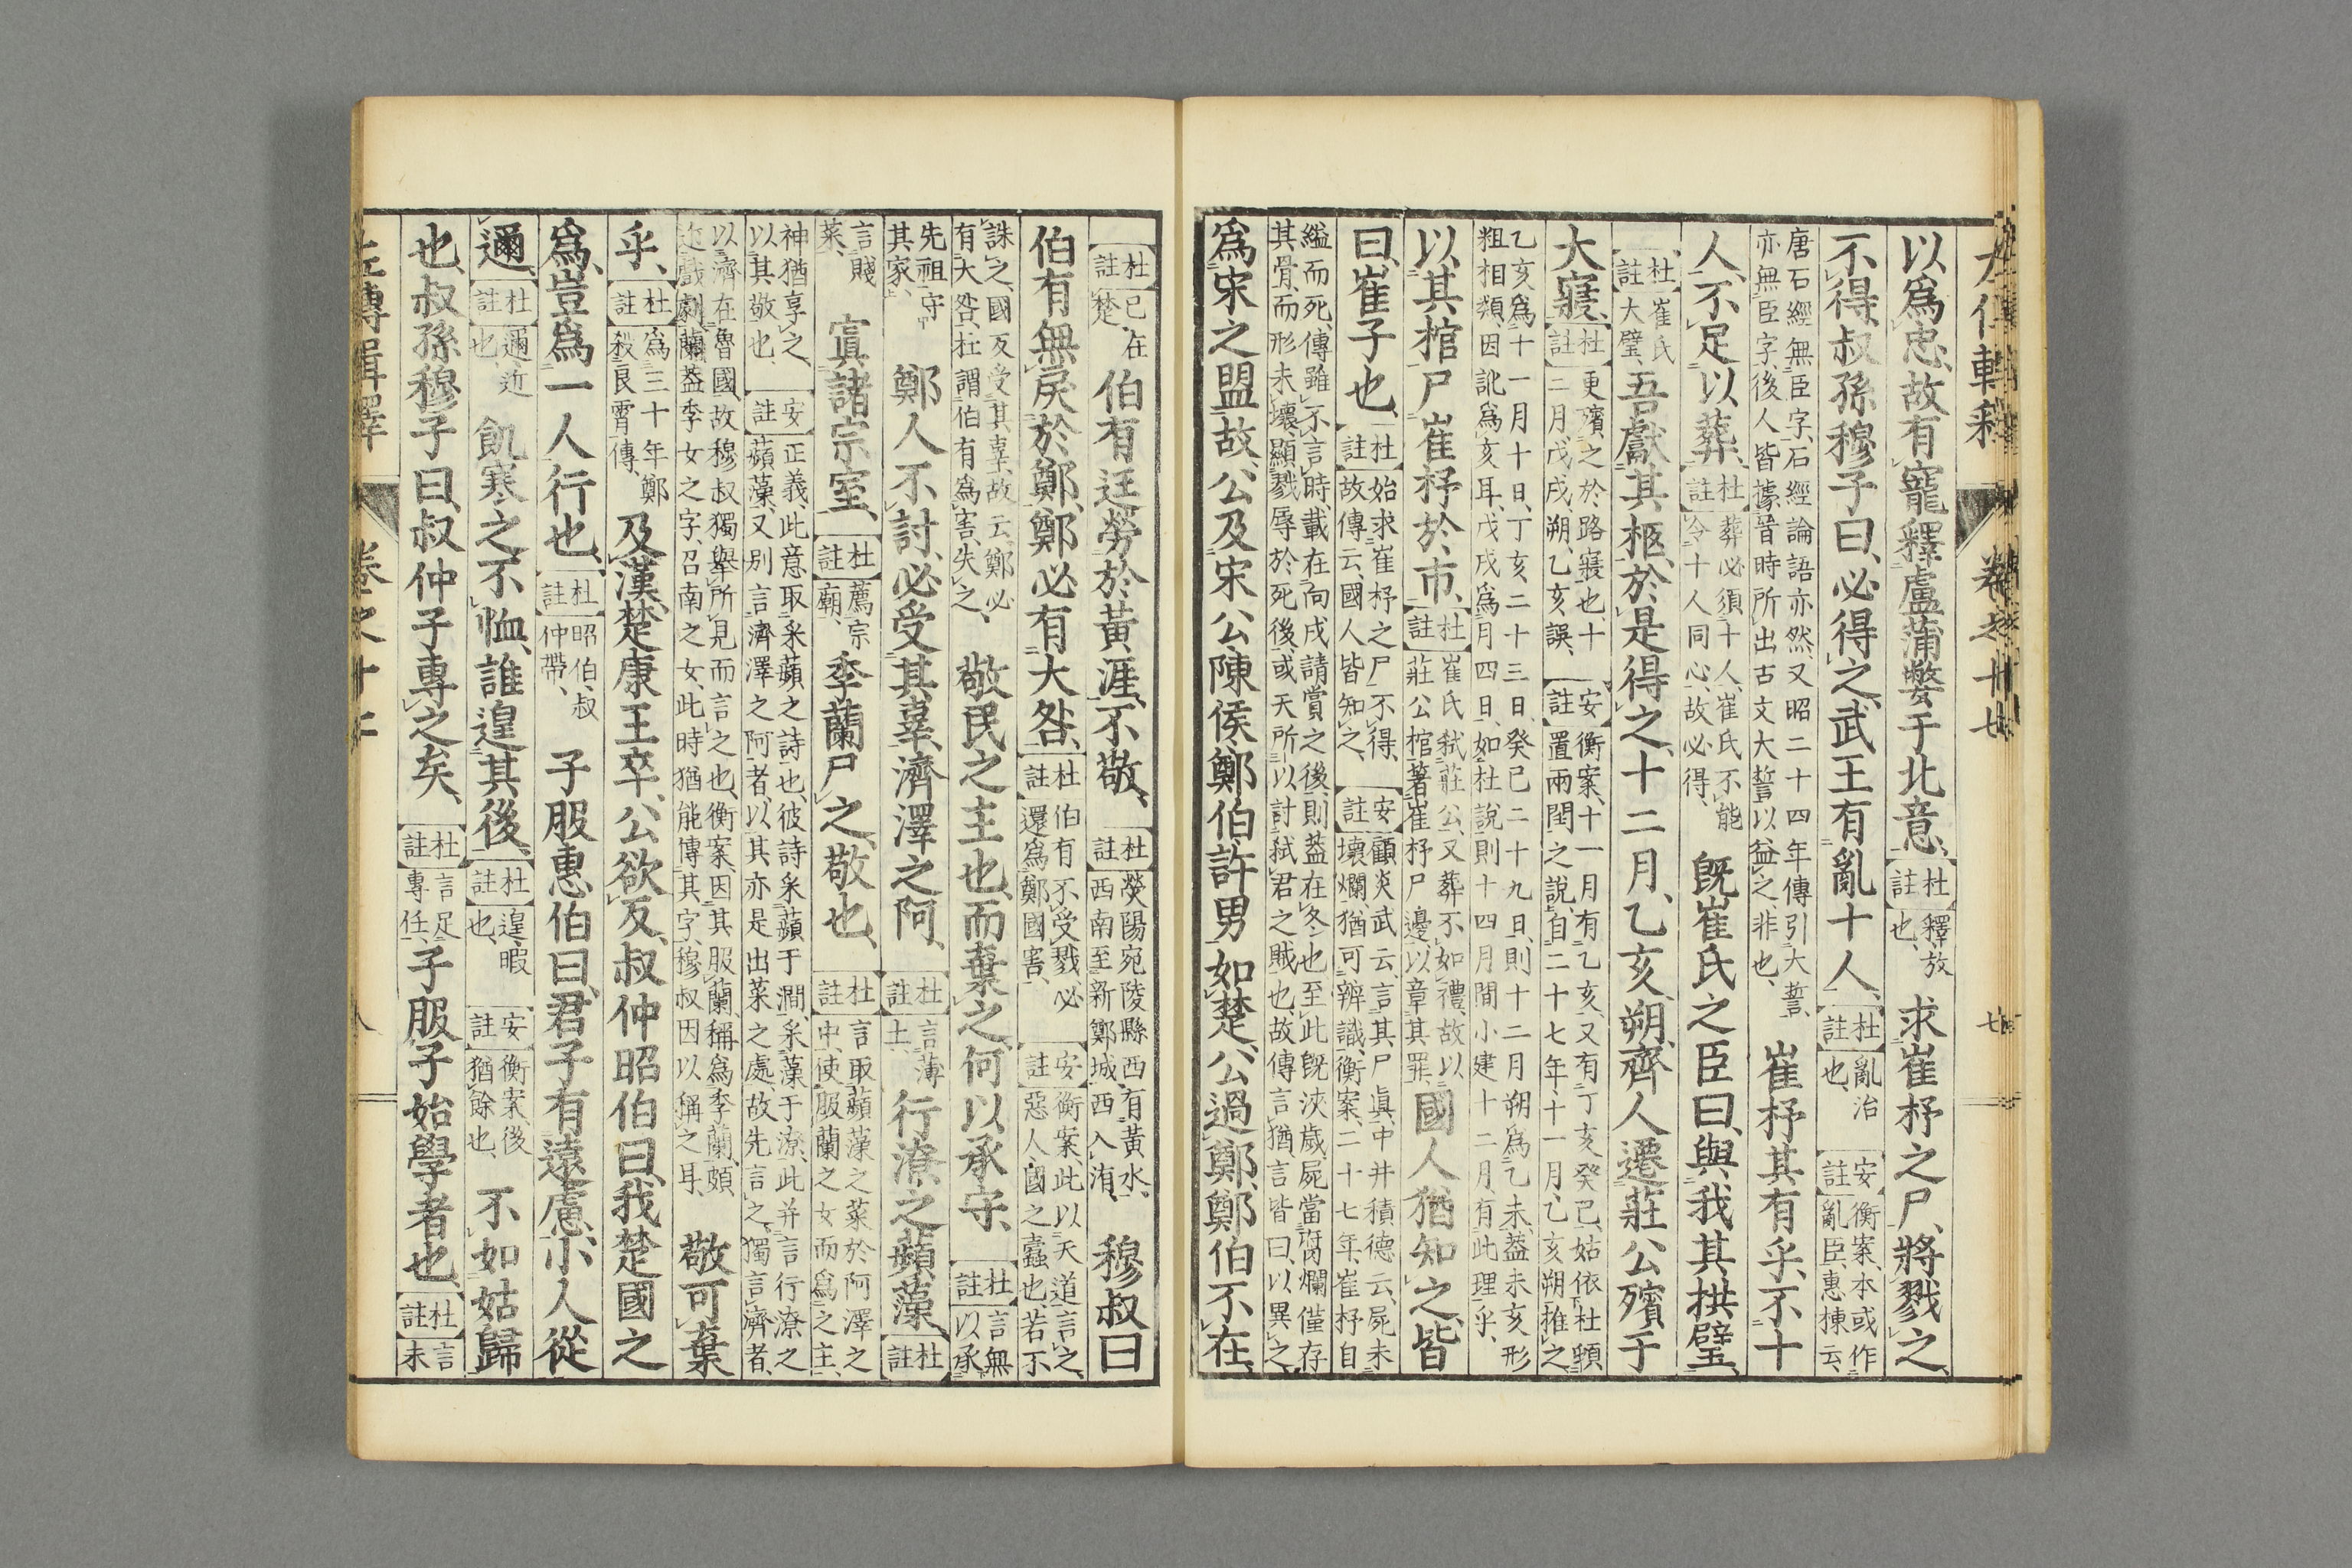 以爲忠、故有寵、釋盧蒲嫳于北意、杜註釋、放也、求崔杼之尸、將戮之、
不得、叔孫穆子曰、必得之、武王有亂十人、杜註亂、治也、安註衡案、本或作亂臣、惠棟云、
唐石經無臣字、石經論語亦然、又昭二十四年傳引大誓、亦無臣字、後人皆據晉時所出古文大誓以益之、非也、崔杼其有乎、不十
人、不足以葬、杜註葬必須十人、崔氏不能令十人同心、故必得、旣崔氏之臣曰、與我其拱璧、
杜註崔氏大璧、吾獻其柩、於是得之、十二月、乙亥、朔、齊人遷莊公殯于
大寢、杜註更殯之於路寢也、十二月戊戌、朔、乙亥誤、安註衡案、十一月有乙亥、又有丁亥癸巳、姑依杜頻置兩閏之說、自二十七年、十一月、乙亥朔推之
乙亥爲十一月十日、丁亥、二十三日、癸巳二十九日、則十二月朔爲乙未、蓋未亥形粗相類、因訛爲亥耳、戊戌爲月四日、如杜說則十四月間小建十二月、有此理乎、
以其棺尸崔杼於市、杜註崔氏弑莊公、又葬不如禮、故以莊公棺著崔杼尸邊、以章其罪、國人猶知之、皆
曰、崔子也、杜註始求崔杼之尸不得、故傳云、國人皆知之、安註顧炎武云、言其尸眞、中井積德云、屍未壞爛、猶可辨識、衡案、二十七年、崔杼自
縊而死、傳雖不言時、載在向戌請賞之後、則蓋在冬也、至此旣浹歲、屍當腐爛、僅存其骨、而形未壞、顯戮辱於死後、或天所以討弑君之賊也、故傳言猶、言皆曰、以異之、
爲宋之盟故、公及宋公陳侯鄭伯許男如楚、公過鄭、鄭伯不在、
杜註已在楚、伯有迋勞於黃涯、不敬、杜註熒陽宛陵縣西有黃水、西南至新鄭城西入洧、穆叔曰
伯有無戾於鄭、鄭必有大咎、杜註伯有不受戮、必還爲鄭國害、安註衡案、此以天道言之、惡人、國之蠹也、若不
誅之、國反受其辜、故云、鄭必有大咎、杜謂伯有爲害、失之、敬、民之主也、而棄之、何以承守、杜註言無以承
先祖守其家、鄭人不討、必受其辜、濟澤之阿、杜註言薄土、行潦之蘋藻、杜註
言賤菜、寘諸宗室、杜註薦宗廟、季蘭尸之、敬也、杜註言取蘋藻之菜於阿澤之中、使服蘭之女而爲之主、
神猶享之、以其敬也、安註正義、此意取采蘋之詩也、彼詩采蘋于澗、采藻于潦、此并言行潦之蘋藻、又別言濟澤之阿者、以其亦是出菜之處、故先言之、獨言濟者、
以濟在魯國、故穆叔獨舉所見而言之也、衡案、因其服蘭、稱爲季蘭、頗近戲劇、蘭蓋季女之字、召南之女、此時猶能傳其字、穆叔因以稱之耳、敬可棄
乎、杜註爲三十年、鄭殺良霄傳、及漢、楚康王卒、公欲反、叔仲昭伯曰、我楚國之
爲、豈爲一人行也、杜註昭伯、叔仲帶、子服惠伯曰、君子有遠慮、小人從
邇、杜註邇、近也、飢寒之不恤、誰遑其後、杜註遑、暇也、安註衡案、後猶餘也、不如姑歸
也、叔孫穆子曰、叔仲子專之矣、杜註言足專任、子服子始學者也、杜註言未
左傳輯釋 卷之十七 八